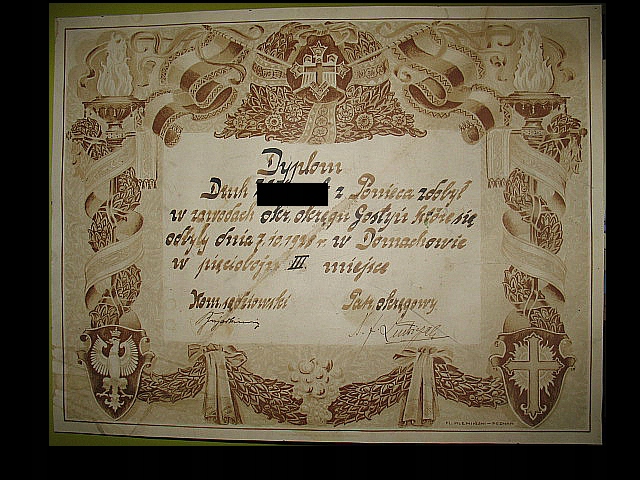 Dyplom
Druh z Ponieca zdobył
w zawodach okr. okręgu Gostyń które się
odbyły dnia 7.10.1928 r. w Domachowie
w pięcioboju III miejsce
Kom. sędziowski Patr. okręgowy